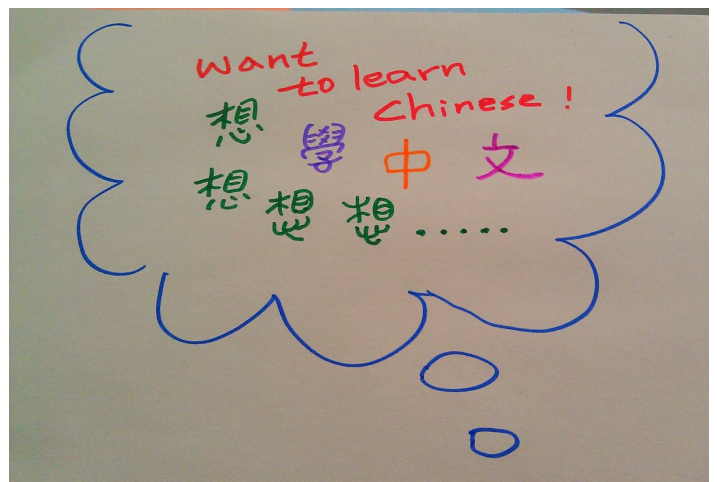 want
to learn
Chinese!
想學中文
想想想......